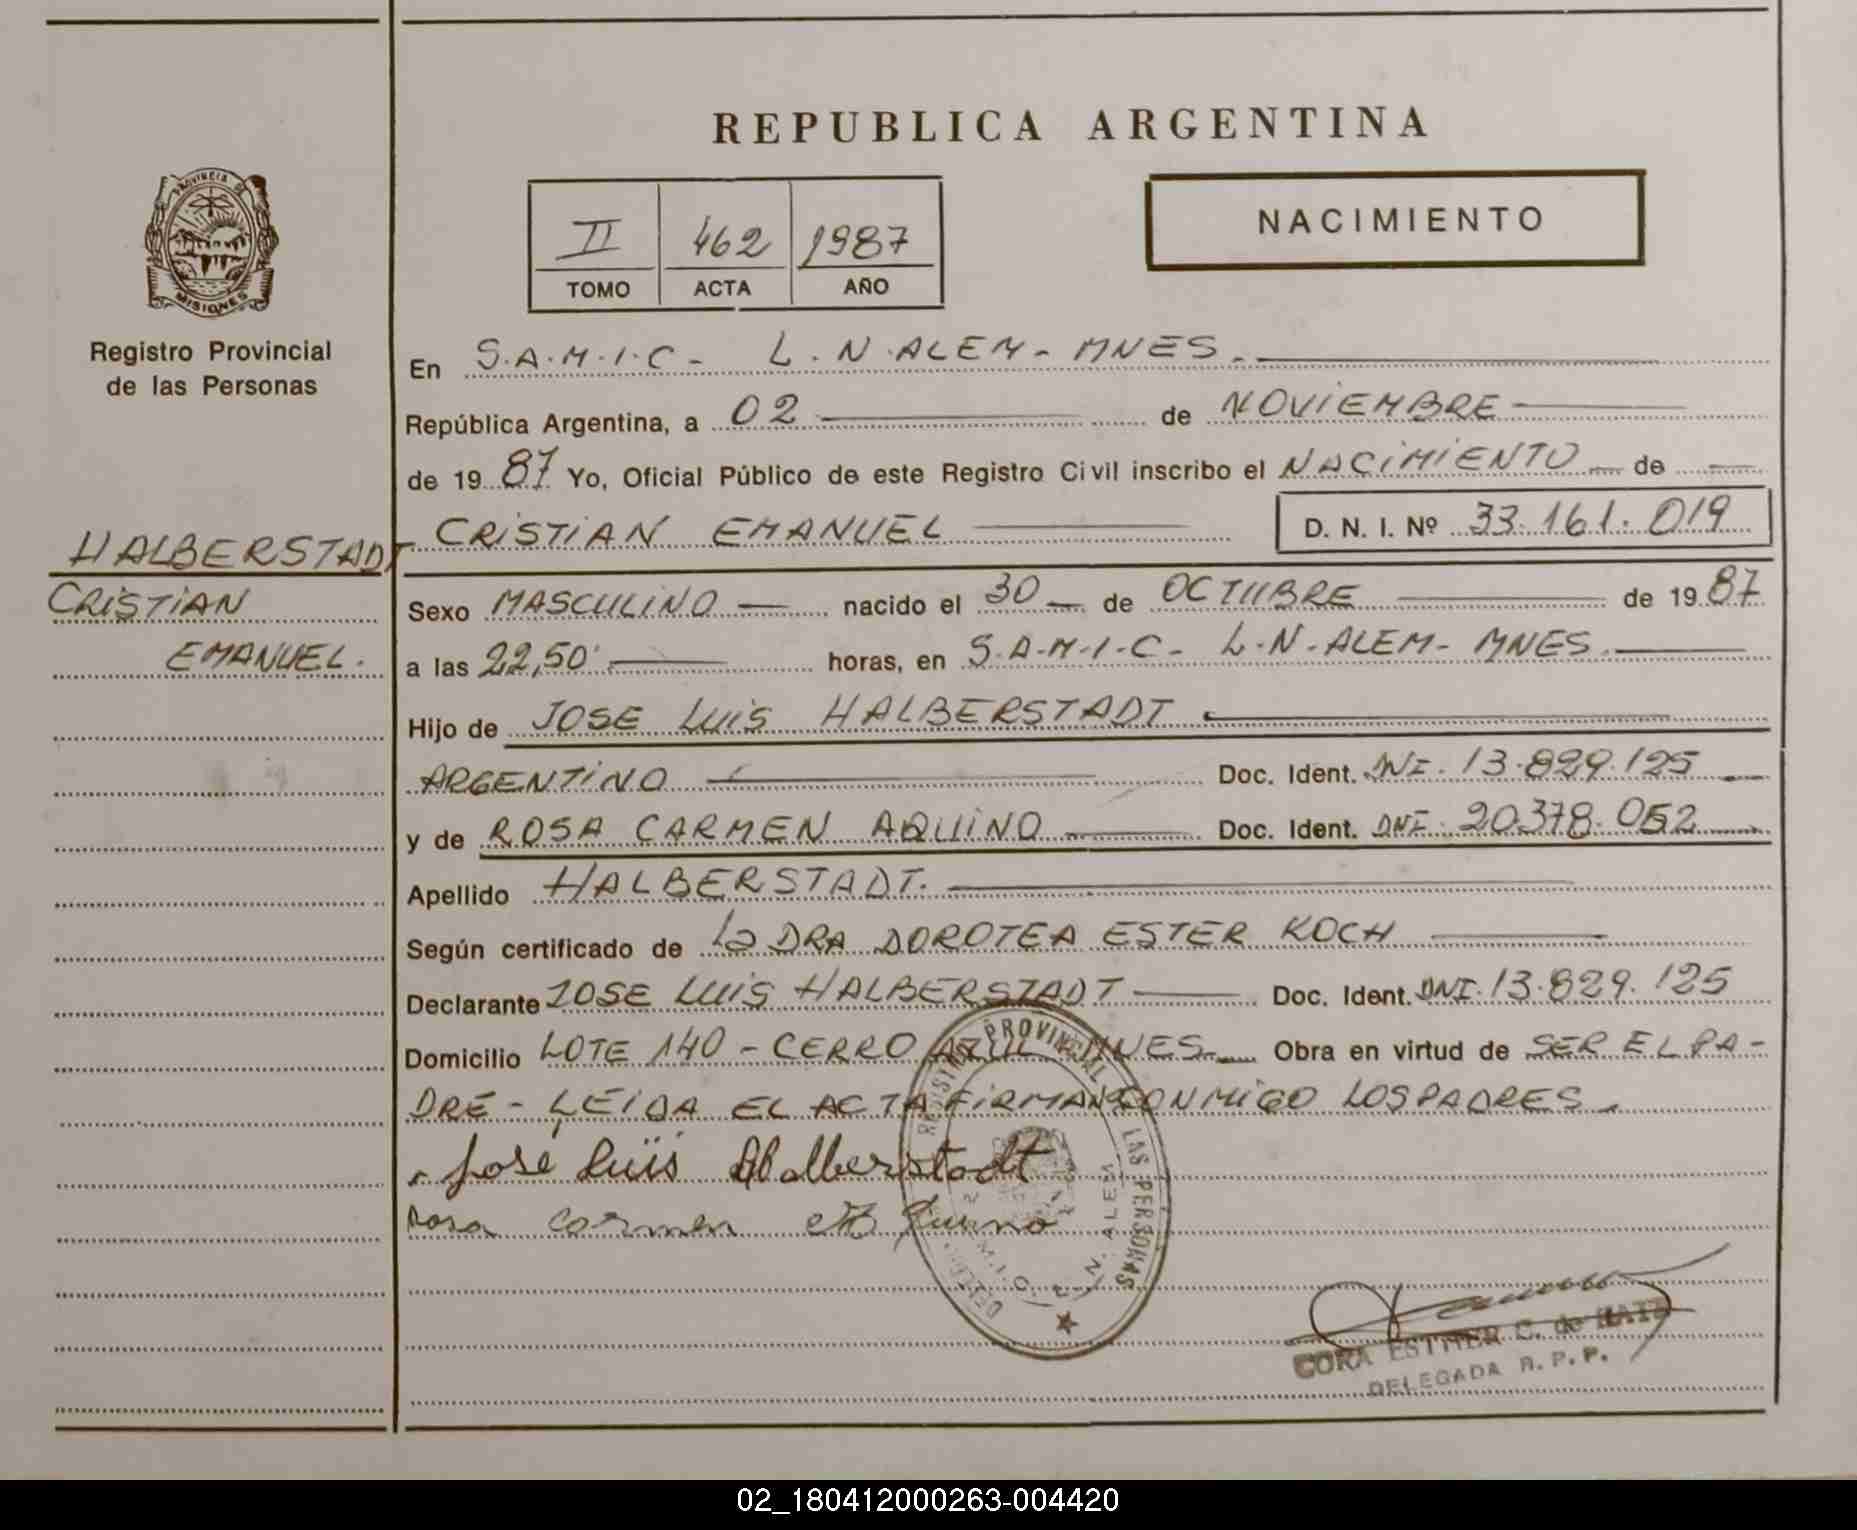 REPUBLICA ARGENTINA
PROVINCIA DE
MISIONES
Registro Provincial
de las Personas
II 462 1987
TOMO ACTA AÑO
NACIMIENTO
En S.A.M.I.C - L.N.ALEM - MNES.
República Argentina, a 02 de NOVIEMBRE
de 1987 Yo, Oficial Público de este Registro Civil inscribo el NACIMIENTO de
CRISTIAN EMANUEL D. N. I. Nº 33.161.019
HALBERSTADT
CRISTIAN
EMANUEL.
Sexo MASCULINO nacido el 30 de OCTUBRE de 1987
a las 22,50' horas, en S.A.M.I.C - L.N.ALEM - MNES.
Hijo de JOSE LUIS HALBERSTADT
ARGENTINO Doc. Ident. DNI. 13.829.125
y de ROSA CARMEN AQUINO Doc. Ident. DNI. 20.378.052
Apellido HALBERSTADT.
Según certificado de La DRA DOROTEA ESTER KOCH
Declarante JOSE LUIS HALBERSTADT Doc. Ident. DNI. 13.829.125
Domicilio LOTE 140 - CERRO AZUL MNES. Obra en virtud de SER EL PA-
DRE - LEIDA EL ACTA FIRMAN CONMIGO LOS PADRES.
José Luis Halberstadt
Rosa Carmen Aquino
REGISTRO PROVINCIAL LAS PERSONAS
L. N. ALEM
CORA ESTHER C. de
DELEGADA R. P. P.
02_180412000263-004420